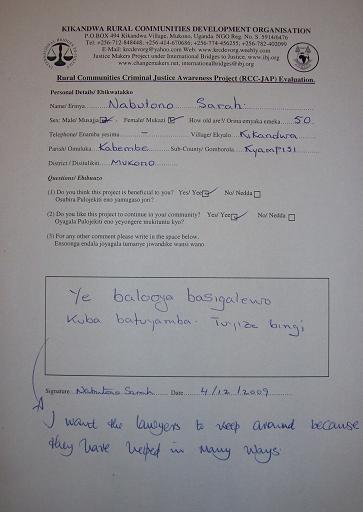 KIKANDWA RURAL COMMUNITIES DEVELOPMENT ORGANISATION
P.O.BOX 494 Kikandwa Village, Mukono, Uganda NGO Reg. No. S. 5914/6476
Tel: +256-712-848448; +256-414-670686; +256-774-456255; +256-782-402099
E-Mail: krcdevorg@yahoo.com Web: www.krcdevorg.weebly.com
Justice Makers Project under International Bridges to Justice, www.ibj.org
www.changemakers.net, international@ibj.org
Rural Communities Criminal Justice Awareness Project (RCC-JAP) Evaluation.
Personal Details/ Ebikwatako
Name/ Erinya Nabutono Sarah
Sex: Male/ Musajja Female/ Mukazi How old are? Orina emyaka emeka 50
Telephone/ Enamba yesimu - Village/ Ekyalo Kikandwa
Parish/ Omuluka Kabembe Sub-County/ Gomborola Kyampisi
District / Disitulikiti Mukono
Questions/ Ebibuuzo
(1) Do you think this project is beneficial to you? Yes/ Yee No/ Nedda
Osubira Pulojekiti eno yamugaso jori?
(2) Do you like this project to continue in your community? Yes/ Yee No/ Nedda
Oyagala Pulojekiti eno yeyongere mukitunto kyo?
(3) For any other comment please write in the space below.
Ensonga endala joyagala tumanye jiwandike wansi wano
Ye balooya basigalewo
Kuba batuyamba. Tujize bingi
Signature Nabutono Sarah Date 4/12/2009
I want the lawyers to keep around because
they have helped in many ways.